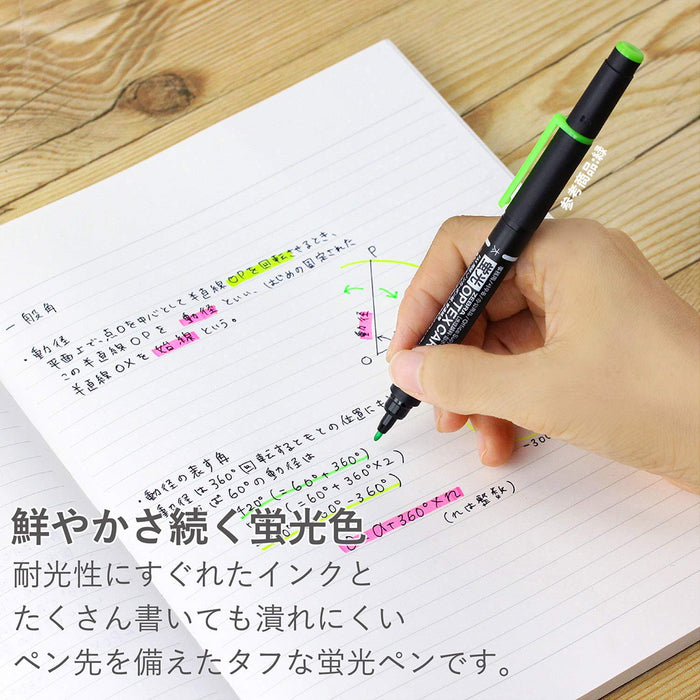 一般角
・動径
平面上で、点Oを中心として半直線OPを回転させるとき、
この半直線OPを動径といい、はじめの固定された
半直線OXを始線という。
P
動径
O
・動径の表す角
動径は360°回転するともとの位置にも
60°の動径は
420°(=60°+360°)
(=60°+360°×2)
-360°)
α+360°×n
(nは整数)
-300°
参考商品:緑
太
蛍光 OPTEX CAR
ZEBRA
鮮やかさ続く蛍光色
耐光性にすぐれたインクと
たくさん書いても潰れにくい
ペン先を備えたタフな蛍光ペンです。